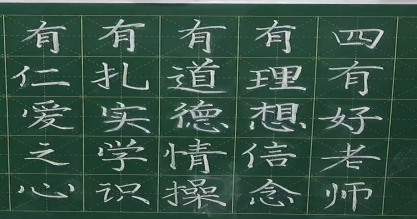 四有好老师
有理想信念
有道德情操
有扎实学识
有仁爱之心